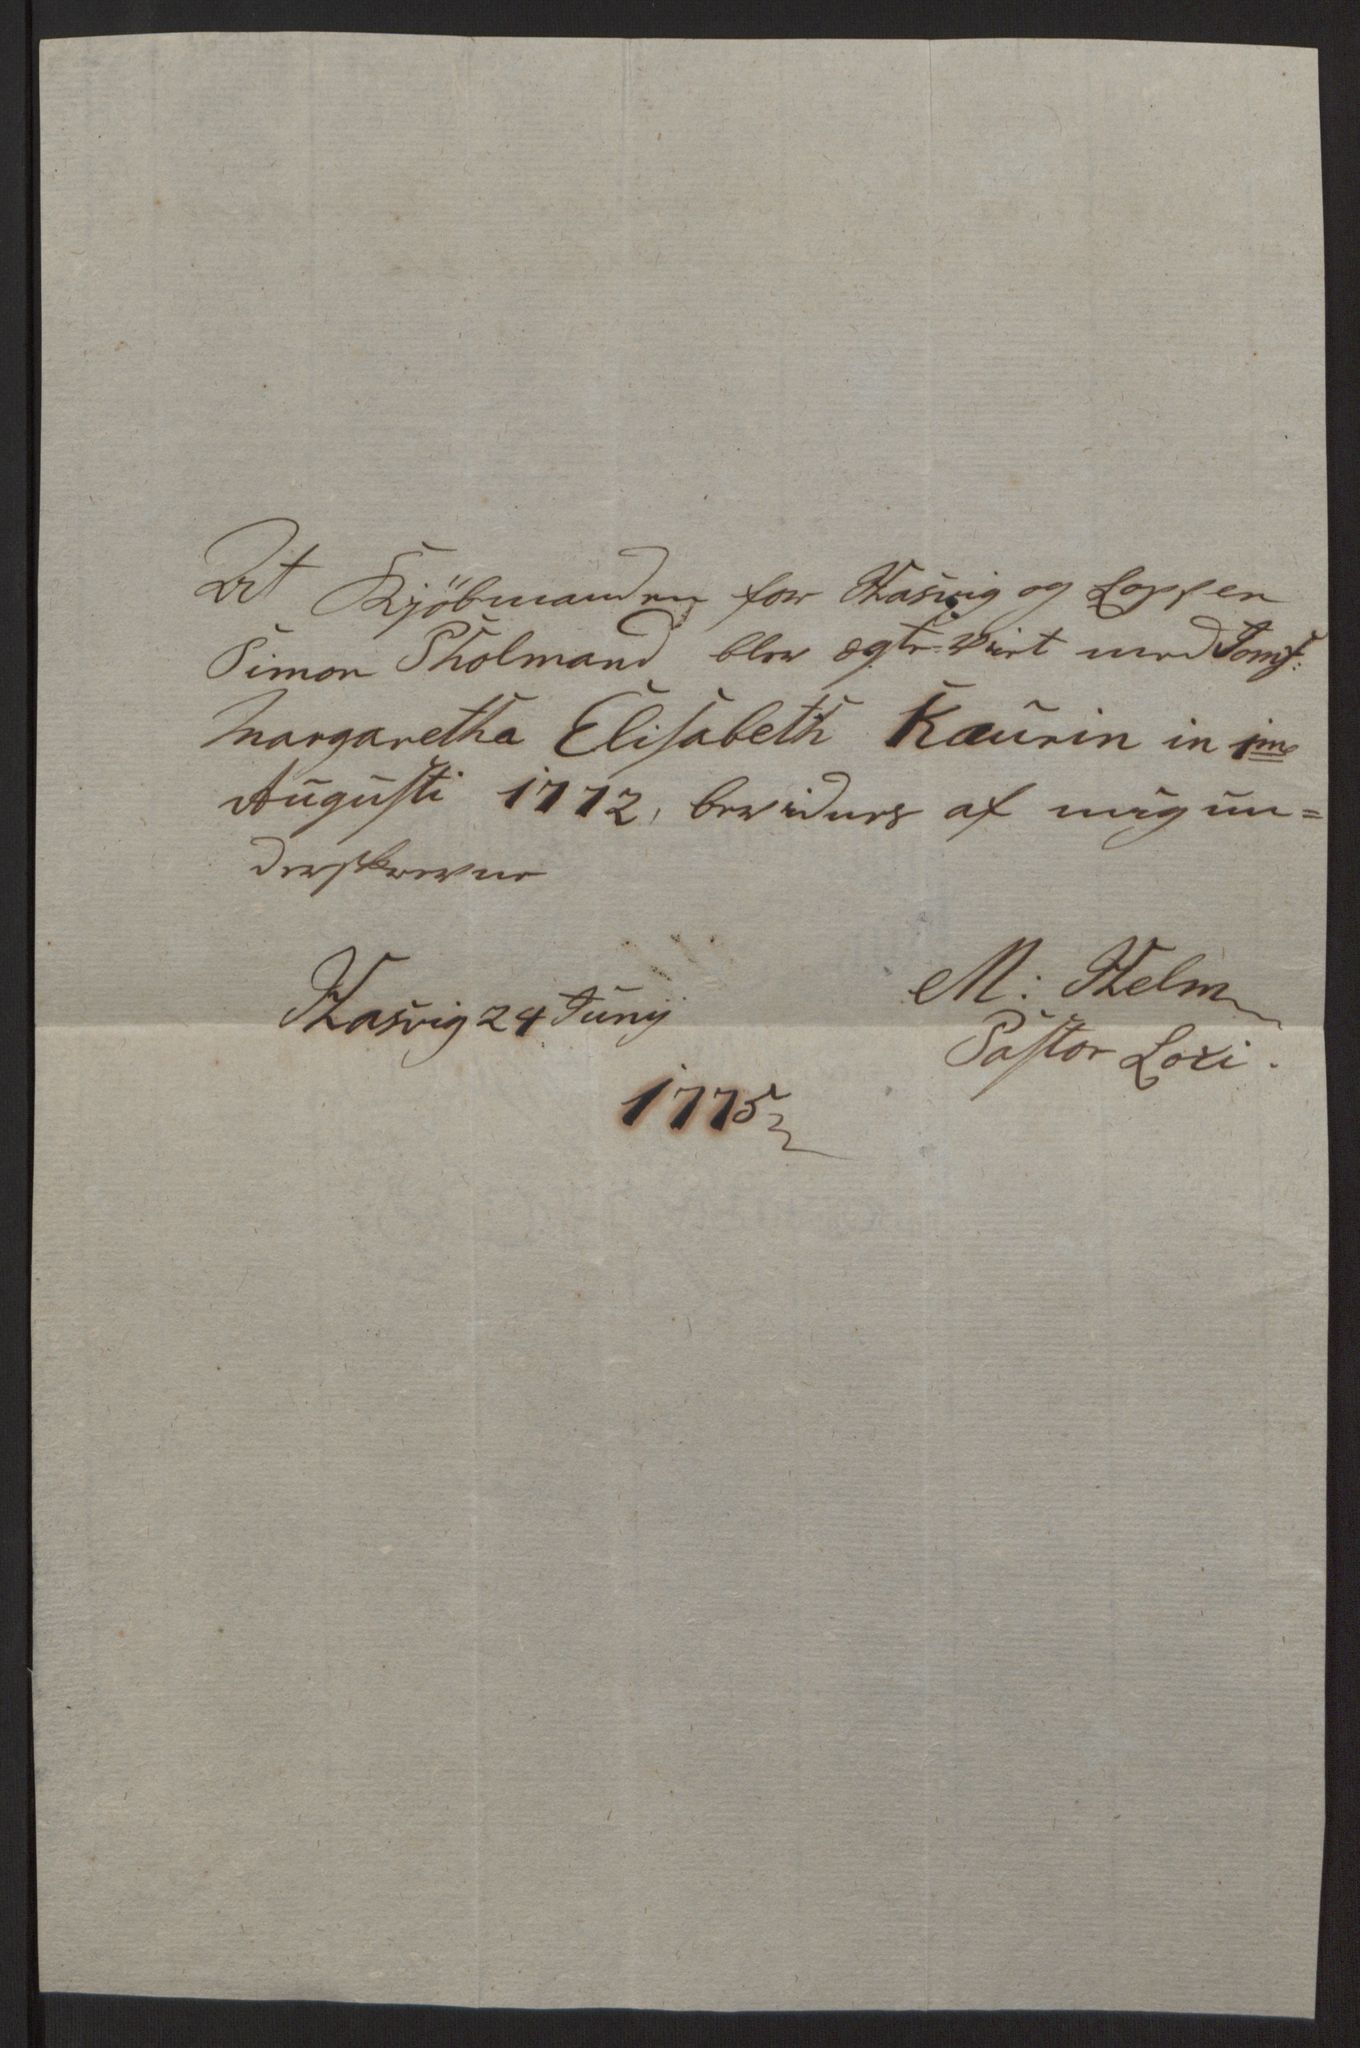 At Kjöbmanden for Hasvig og Loppen
Simon Kholmand blev ægte-viet med Jomf:
Margaretha Elisabeth Kaurin in 1me
Augusti 1772, bevidnes af mig un=
derskrevne
Hasvig 24 Junij
1775
M: Helm
Pastor Loci.